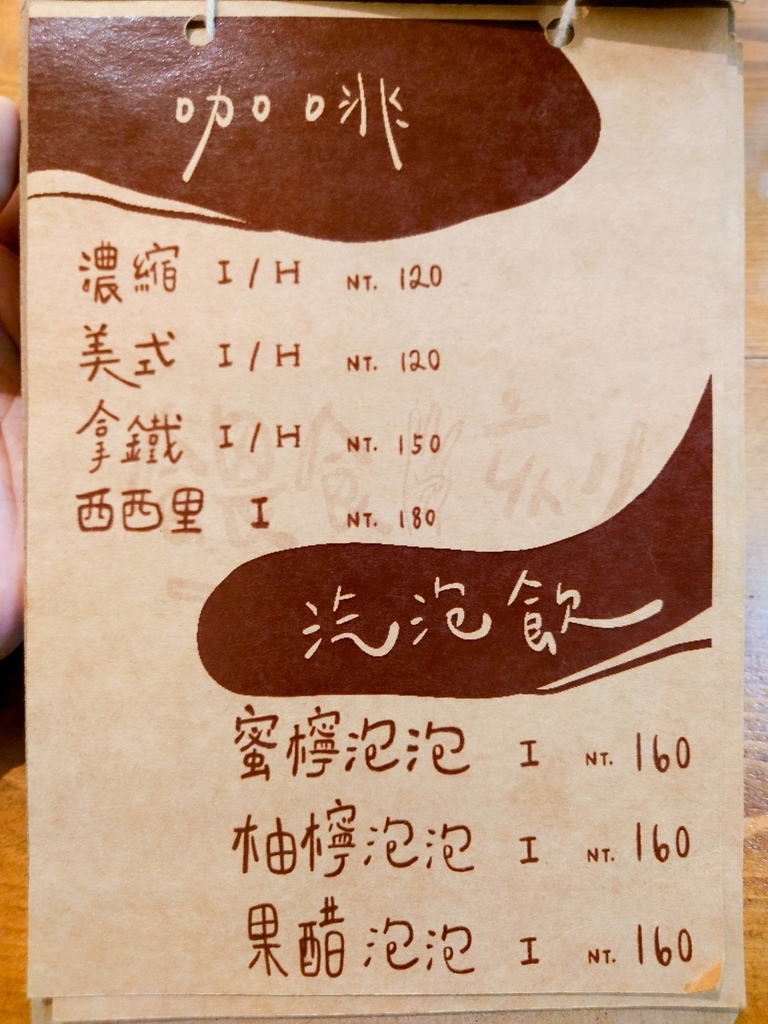 咖啡
濃縮 I / H NT. 120
美式 I / H NT. 120
拿鐵 I / H NT. 150
西西里 I NT. 180
汽泡飲
蜜檸泡泡 I NT. 160
柚檸泡泡 I NT. 160
果醋泡泡 I NT. 160